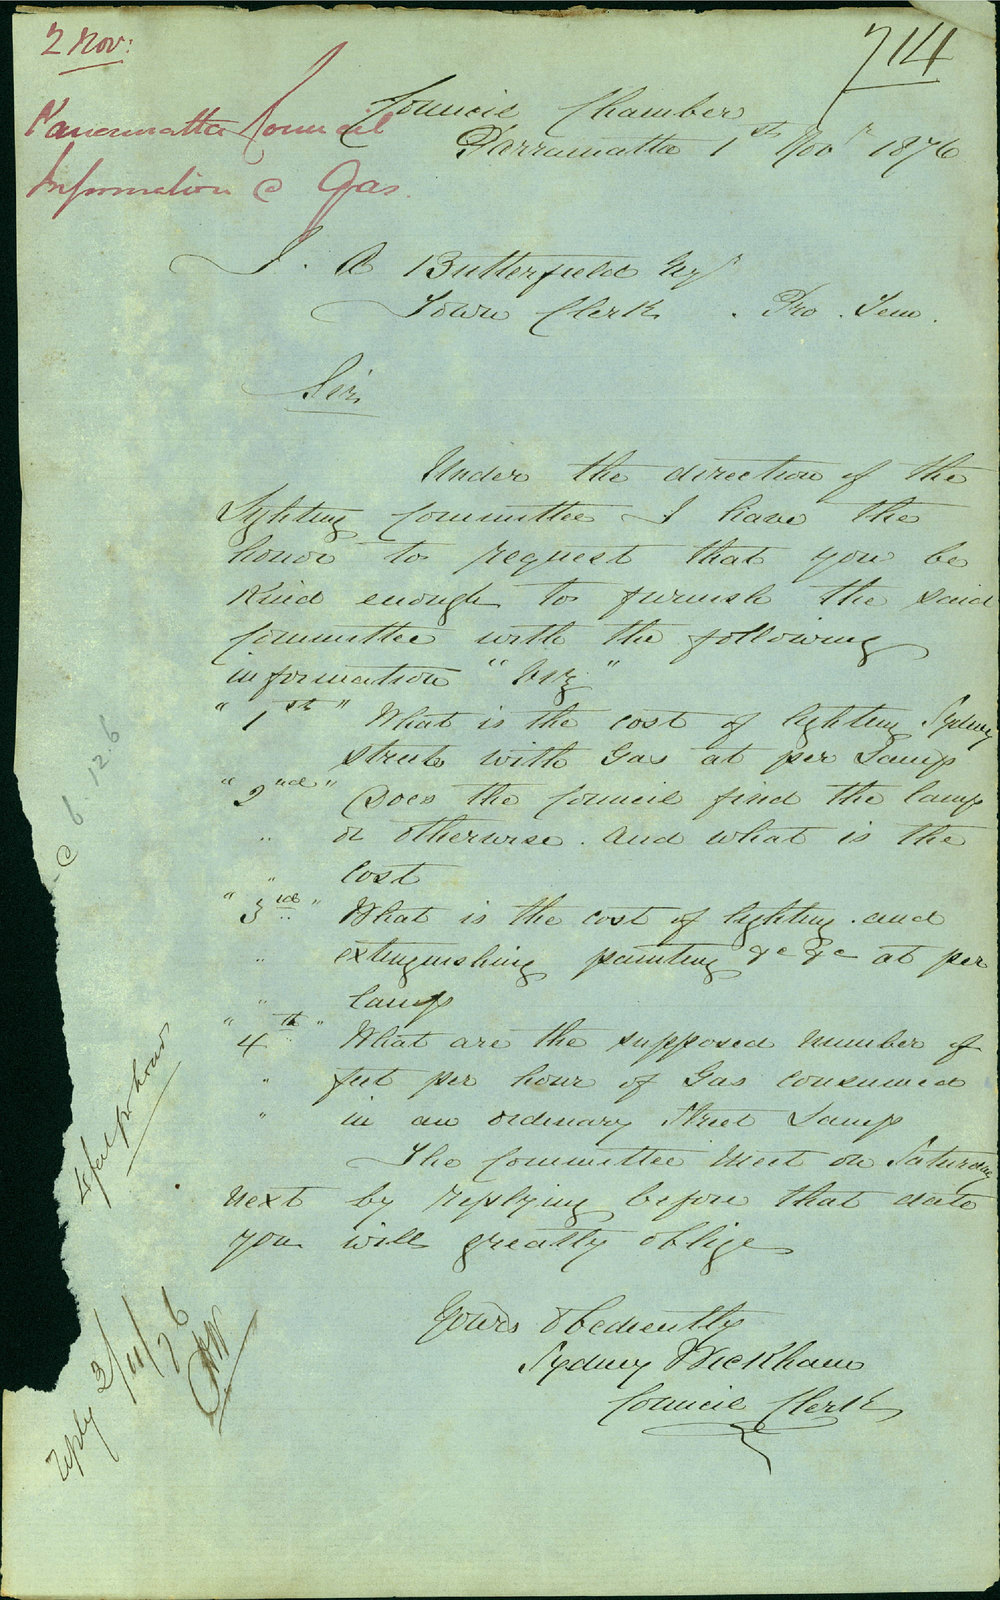 2 Nov:
714
Parramatta Council
Information @ Gas.
Council Chamber
Parramatta 1st Novr 1876
J. A Butterfield Esqr
Town Clerk. Pro. Tem.
Sir
Under the direction of the
Lighting Committee I have the
honor to request that you be
Kind enough to furnish the said
Committee with the following
information "Viz"
"1st" What is the cost of lighting Sydney
streets with Gas at per Lamp
"2nd" Does the Council find the lamp
" or otherwise. and what is the
" cost
"3rd" What is the cost of lighting. and
" extinguishing painting &c &c at per
" lamp
"4th" What are the supposed number of
" feet per hour of Gas consumed
" in an ordinary Street Lamp
The Committee Meet on Saturday
next by replying before that date
you will greatly oblige
Yours Obediently
Sydney Wickham
Council Clerk
C 6.12.6
per hour
reply 3/11/76